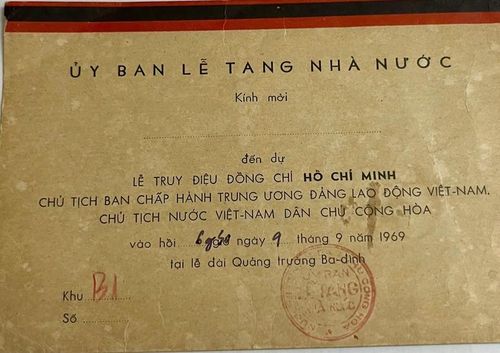 ỦY BAN LỄ TANG NHÀ NƯỚC
Kính mời
đến dự
LỄ TRUY ĐIỆU ĐỒNG CHÍ HỒ CHÍ MINH
CHỦ TỊCH BAN CHẤP HÀNH TRUNG ƯƠNG ĐẢNG LAO ĐỘNG VIỆT-NAM.
CHỦ TỊCH NƯỚC VIỆT-NAM DÂN CHỦ CỘNG HÒA
vào hồi ngày 9 tháng 9 năm 1969
tại lễ đài Quảng trường Ba-đình
Khu B1
Số
BAN
LỄ TANG
NHÀ NƯỚC